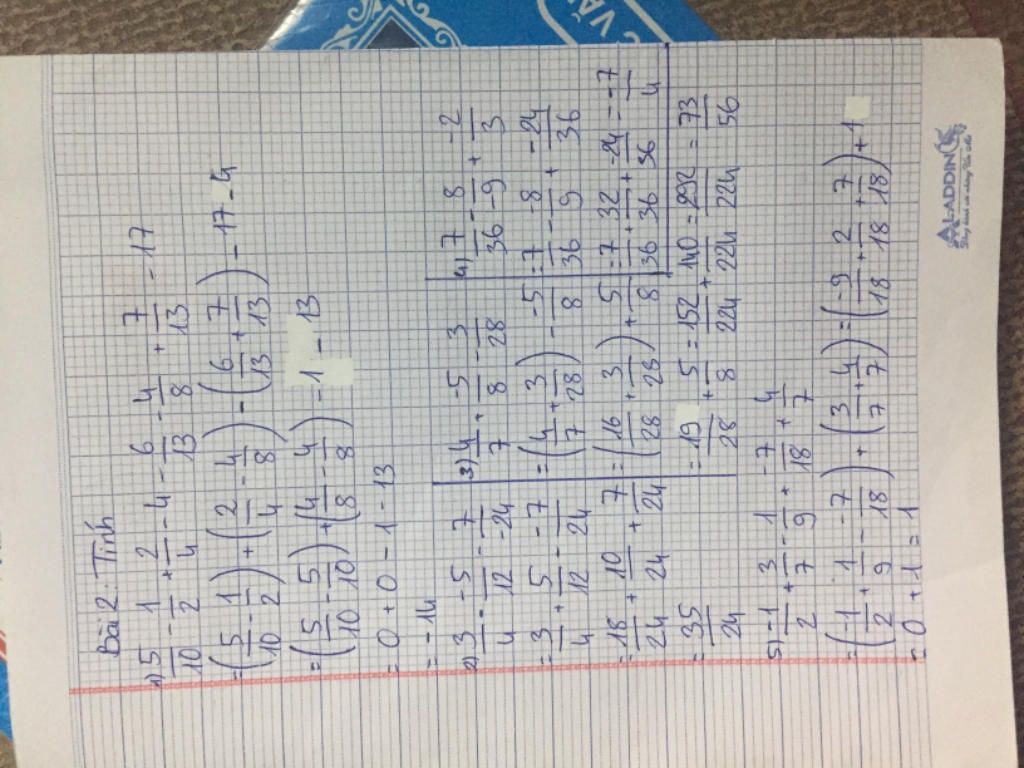 Bài 2: Tính
1) 5/10 - 1/2 + 2/4 - 4 - 6/13 - 4/8 + 7/13 - 17
= (5/10 - 1/2) + (2/4 - 4/8) - (6/13 + 7/13) - 17 - 4
= (5/10 - 5/10) + (4/8 - 4/8) - 1 - 13
= 0 + 0 - 1 - 13
= -14
2) 3/4 - -5/12 - 7/-24
= 3/4 + 5/12 - -7/24
= 18/24 + 10/24 + 7/24
= 35/24
3) 4/7 + -5/8 - 3/28
= (4/7 + 3/28) - -5/8
= (16/28 + 3/28) + 5/8
= 19/28 + 5/8 = 152/224 + 140/224 = 292/224 = 73/56
4) 7/36 - 8/-9 + -2/3
= 7/36 - -8/9 + -24/36
= 7/36 + 32/36 + -24/36 = -7/4
5) -1/2 + 3/7 - 1/9 + -7/18 + 4/7
= (-1/2 + 1/9 - -7/18) + (3/7 + 4/7) = (-9/18 + 2/18 + 7/18) + 1
= 0 + 1 = 1
ALADDIN